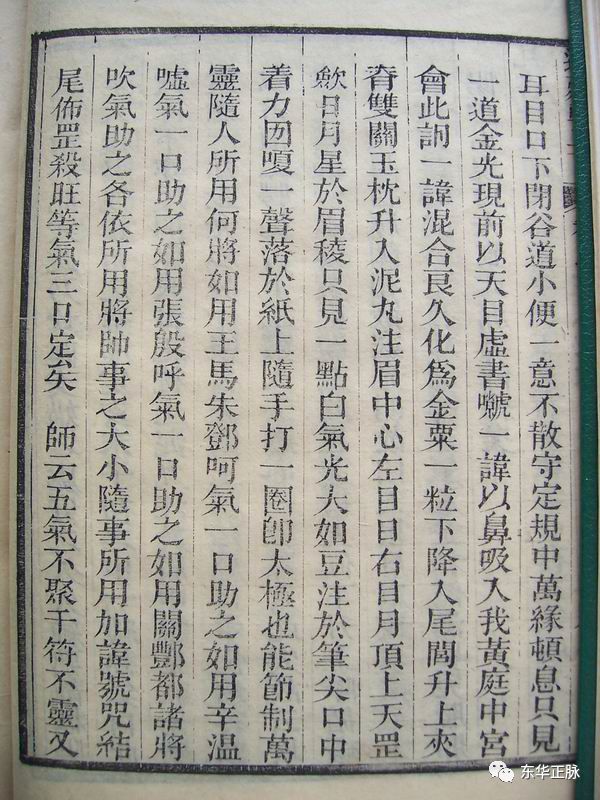 耳目口下閉谷道小便一意不散守定規中萬緣頓息只見
一道金光現前以天目虛書㘕一諱以鼻吸入我黃庭中宮
會此訶一諱混合良久化為金粟一粒下降入尾閭升上夾
脊雙關玉枕升入泥丸注眉中心左目日右目月頂上天罡
歛日月星於眉稜只見一點白氣光大如豆注於筆尖口中
着力囬嗄一聲落於紙上隨手打一圈卽太極也能節制萬
靈隨人所用何將如用王馬朱鄧呵氣一口助之如用辛溫
噓氣一口助之如用張殷呼氣一口助之如用關酆都諸將
吹氣助之各依所用將帥事之大小隨事所用加諱號咒結
尾佈罡殺旺等氣三口定矣 師云五氣不聚干符不靈又
东华正脉